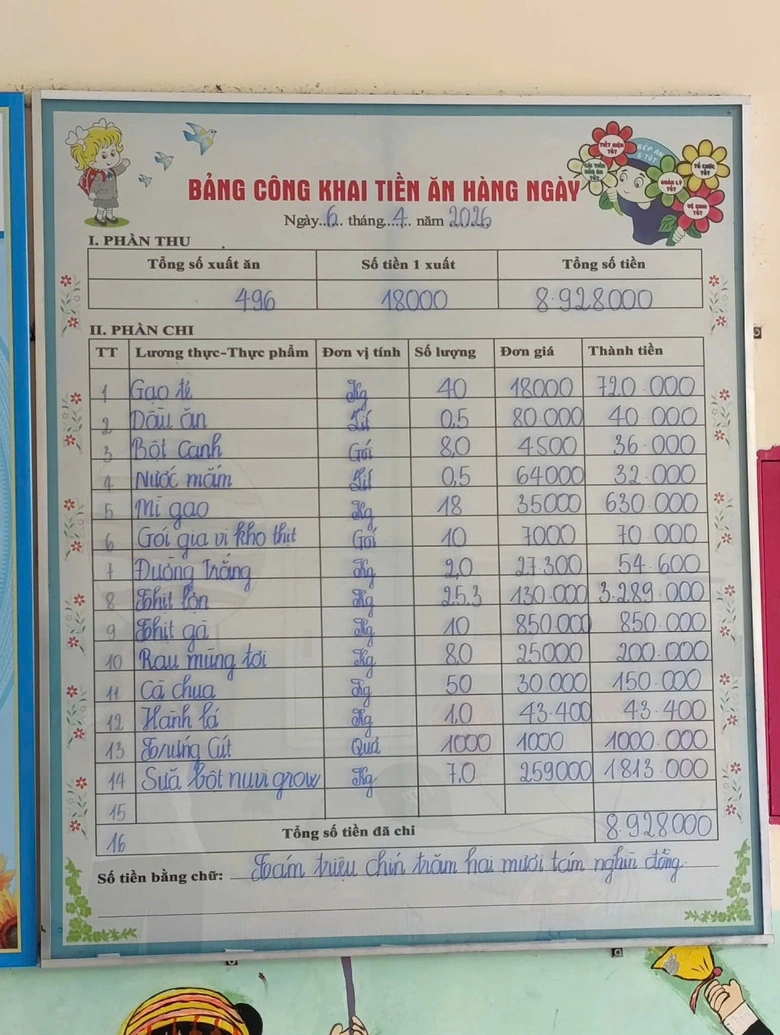 BẢNG CÔNG KHAI TIỀN ĂN HÀNG NGÀY
TIẾT KIỆM TỐT
BẾP ĂN 5 TỐT
TỔ CHỨC TỐT
QUẢN LÝ TỐT
VỆ SINH TỐT
Ngày..6.. tháng..4.. năm 2026
I. PHẦN THU
Tổng số xuất ăn Số tiền 1 xuất Tổng số tiền
496 18000 8.928000
II. PHẦN CHI
TT Lương thực-Thực phẩm Đơn vị tính Số lượng Đơn giá Thành tiền
1 Gạo tẻ Kg 40 18000 720.000
2 Dầu ăn Lít 0,5 80.000 40.000
3 Bột canh Gói 8,0 4500 36.000
4 Nước mắm Lít 0,5 64000 32.000
5 Mì gạo Kg 18 35000 630.000
6 Gói gia vị kho thịt Gói 10 7000 70.000
7 Đường trắng Kg 2,0 27.300 54.600
8 Thịt lợn Kg 25,3 130.000 3.289.000
9 Thịt gà Kg 10 850.000 850.000
10 Rau mùng tơi Kg 8,0 25000 200.000
11 Cà chua Kg 50 30.000 150.000
12 Hành lá Kg 1,0 43.400 43.400
13 Trứng Cút Quả 1000 1000 1000.000
14 Sữa bột nuvi grow Kg 7,0 259000 1813.000
15
16 Tổng số tiền đã chi 8.928000
Số tiền bằng chữ: Tám triệu chín trăm hai mươi tám nghìn đồng